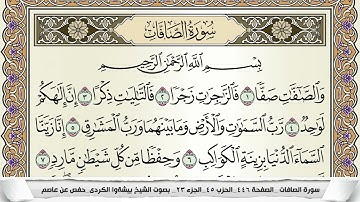 سُورَةُ الصَّافَّاتِ
بِسْمِ اللَّهِ الرَّحْمَٰنِ الرَّحِيمِ
وَالصَّافَّاتِ صَفًّا ١ فَالزَّاجِرَاتِ زَجْرًا ٢ فَالتَّالِيَاتِ ذِكْرًا ٣ إِنَّ إِلَٰهَكُمْ
لَوَاحِدٌ ٤ رَبُّ السَّمَاوَاتِ وَالْأَرْضِ وَمَا بَيْنَهُمَا وَرَبُّ الْمَشَارِقِ ٥ إِنَّا زَيَّنَّا
السَّمَاءَ الدُّنْيَا بِزِينَةٍ الْكَوَاكِبِ ٦ وَحِفْظًا مِنْ كُلِّ شَيْطَانٍ مَارِدٍ ٧
سورة الصافات_ الصفحة ٤٤٦_ الحزب ٤٥_ الجزء ٢٣_ بصوت الشيخ بيشةوا الكردي_ حفص عن عاصم